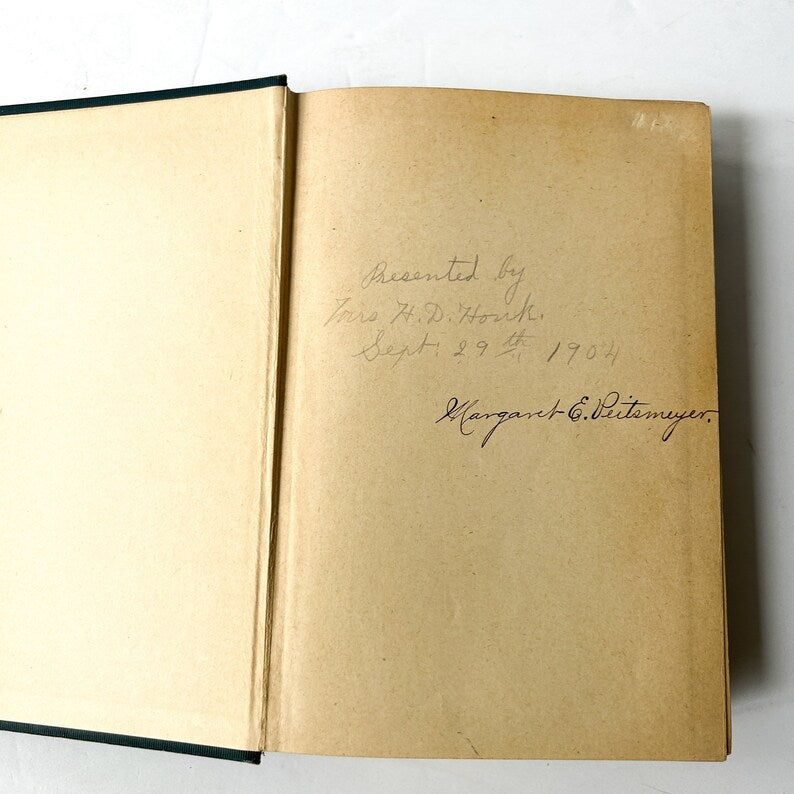 Presented by
Mrs H. D. Houk.
Sept. 29th 1904
Margaret E. Peitsmeyer.